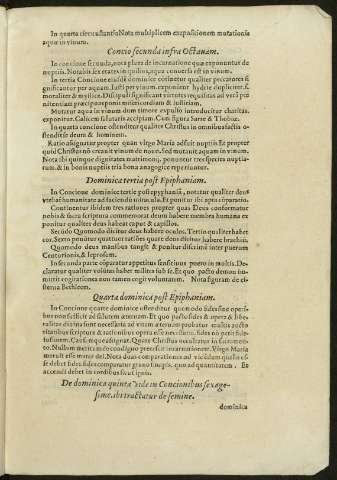 In quarta
Nota multiplicem expositionem mutationis
aquæ in vinum.
Concio secunda infra Octauam.
In concione secunda, nota plura de incarnatione quæ exponuntur de
nuptiis. Notabis sex etates in quibus, aqua conuersa est in vinum.
In tertia Concione eiusdem dominice consequitur qualiter peccatores si
gnificantur per aquam. Iusti per vinum. exponitur hydrie duplicitter. s.
moraliter & mystice. Discipuli significant virtutes
nitentiam præcipue
misericordiam & Iustitiam.
Mutatur aqua in vinum dum timore expulso introducitur charitas.
exponitur. Calicem salutaris accipiam. Cum figura Sarre & Thobiæ.
In quarta concione ostenditur qualiter Christus in omnibus factis o-
stendit se deum & hominem.
Ratio assignatur propter quam virgo Maria adfuit nuptiis Et propter
quid Christus nō creauit vinum de nouo. Sed mutauit aquam in vinum.
Nota ibi quinque dignitates matrimonij, ponuntur tres species nuptia-
rum, & in bonis nuptiis tria bona anagogice reperiuntur.
Dominica tertia post Epiphaniam.
In Concione dominice tertie post epyphaniā, notatur qualiter deus
venit ad humanitatē ad faciendū miracula. Et ponitur ibi apta comparatio.
Continentur ibidem tres rationes propter quas Deus conformatur
nobis & sacra scriptura commemorat deum habere membra humana ex
ponitur qualiter deus habeat caput & capillos.
Secūdo Quomodo dicitur deus habere oculos. Tertio qualiter habet
cor. Sexto ponūtur quattuor rationes quare deus dicitur habere brachiū.
Quomodo deus manibus tangit & ponitur discrimē inter puerum
Centurionis, & leprosum.
In secunda parte coparatur appetitus sensitiuus puero in multis. De-
claratur qualiter voluntas habet milites sub se. Et quo pacto demon im-
mittit cogitationes non tamen cogit voluntatem. Nota figuram de ci-
sterna Bethleem.
Quarta dominica post Epiphaniam.
In Concione quarte dominice ostenditur quomodo fides sine operi-
bus non sufficit ad salutem æternam. Et quo pacto fides & opera & libe-
ralitas diuina sunt necessaria ad vitam æternam probatur multis aucto
ritatibus scripture & rationibus opera esse necessaria. fides nō petit sub
tusionem. Causamque assignat. Quare Christus occultatur in sacramen-
to. Nullum meritum de condigno precessit incarnationem. Virgo Maria
meruit esse mater dei. Nota duas comparationes ad vidēdum qualis es-
se debet fides. fides comparatur grano sinapis, quo ad quantitatem. Et
accendi debet in cordibus sicut ignis.
De dominica quinta vide in Concionibus sexage-
sime. ibi tractatur de semine.
dominica